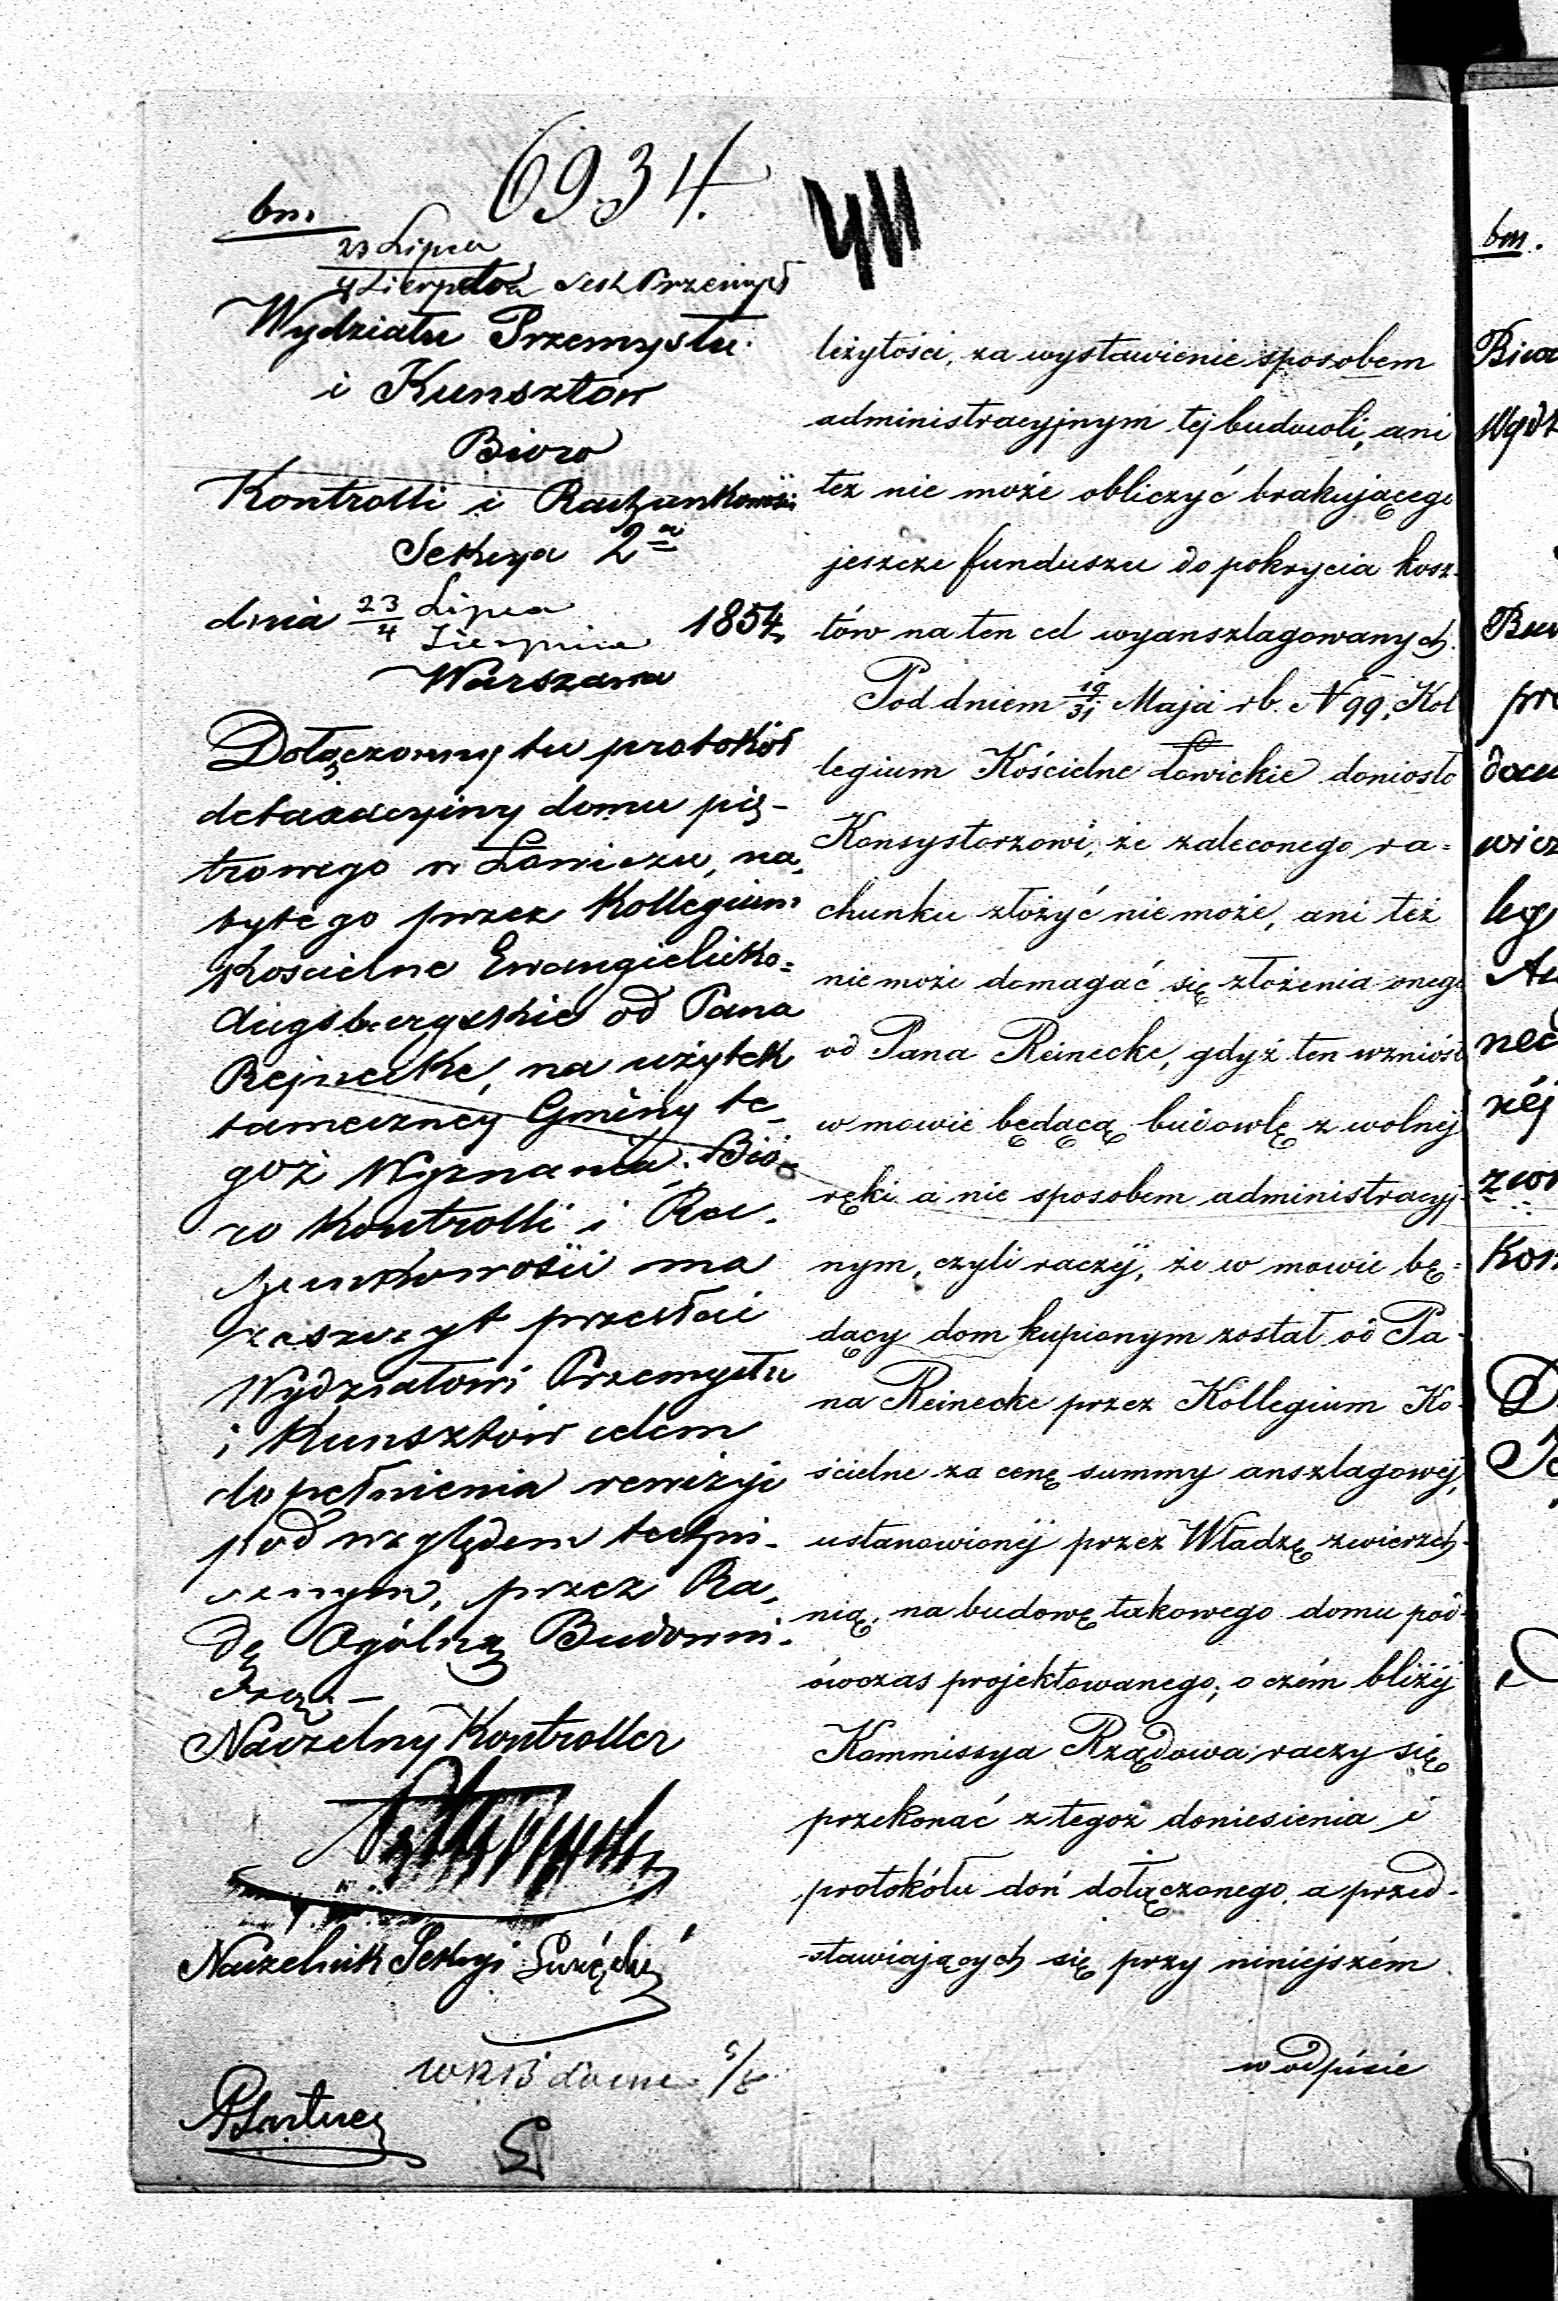 6934.
bm.
23 Lipca
4 Sierpnia Sek Przemysł
Wydziału Przemysłu
i Kunsztów
Bióro
Kontrolli i Rachunkowości
Sekcya 2a
dnia 23/4 Lipca Sierpnia 1854
Warszawa
Dołączonny tu protokół
detaxacyjny domu pię-
trowego w Łowiczu, na-
bytego przez Kollegium
Kościelne Ewangielicko-
Augsburgskie od Pana
Rejnecke, na użytek
tameczney Gminy te-
goż Wyznania, Bió-
ro Kontrolli i Ra-
chunkowości ma
zaszczyt przesłać
Wydziałowi Przemysłu
i Kunsztów celem
dopełnienia rewizyi
pod względem techni-
cznym, przez Ra-
dę Ogólną Budowni-
czą.-
Naczelny Kontroller
Naczelnik Sekcyi
leżytości, za wystawienie sposobem
administracyjnym tej budowli, ani
też nie może obliczyć brakującego
jeszcze funduszu do pokrycia kosz-
tów na ten cel wyanszlagowanych.
Pod dniem 19/31 Maja rb. N 99, Kol
legium Kościelne Łowickie doniosło
Konsystorzowi, że zaleconego ra=
chunku złożyć nie może, ani też
nie może domagać się złożenia onego
od Pana Reinecke, gdyż ten wzniósł
w mowie będącą budowlę z wolnéj
ręki a nie sposobem administracyj-
nym, czyli raczéj, że w mowie bę=
dący dom kupionym został od Pa-
na Reinecke przez Kollegium Ko-
ścielne za cenę summy anszlagowéj,
ustanowionéj przez Władzę zwierzch-
nią, na budowę takowego domu pod-
ówczas projektowanego; o czém bliżéj
Kommissya Rządowa raczy się
przekonać z tegoż doniesienia i
protokółu doń dołączonego, a przed-
stawiających się przy niniejszém
w odpisie
bm.